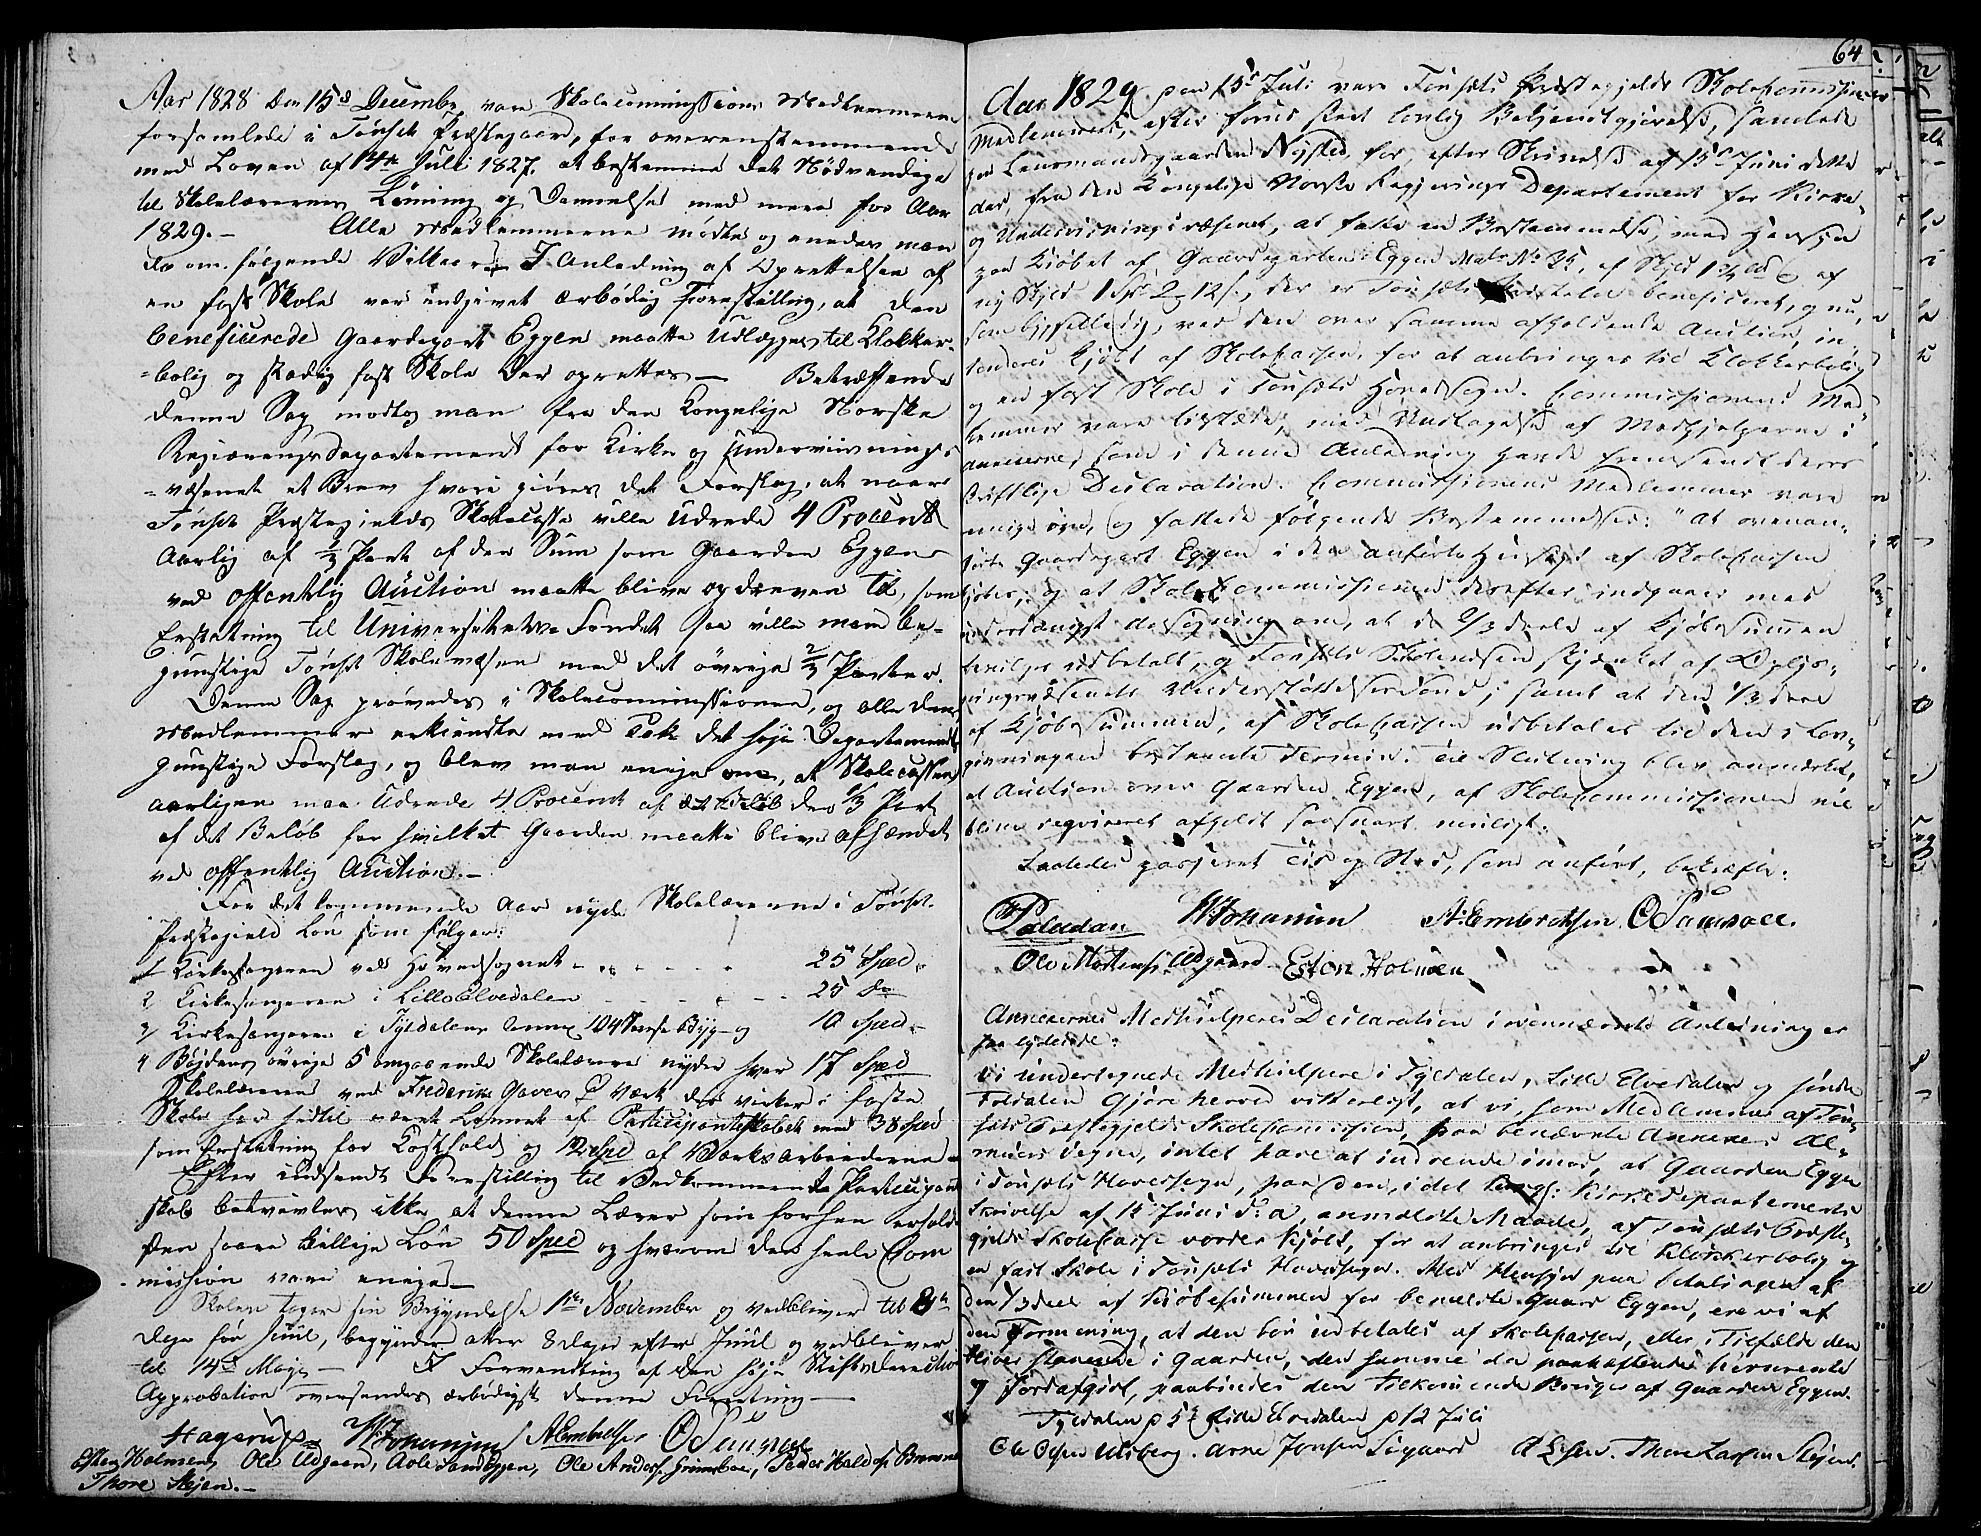 Aar 1828 den 15de December vare Skolecommissions Medlemmerne
forsamlede i Tönset Præstegaard, for overensstemmende
med Loven af 14de Juli 1827. at bestemme det Nödvendige
til Skolelærernes Lönning og Dannelse med mere for Aar
1829.- Alle Medlemmerne mödte og enedes man
da om følgende Vilkaar. I Anledning af Oprettelsen af
en fast Skole var indgivet ærbödig Forestilling, at den
beneficerede Gaardepart Eggen maatte Udlægges til Klokker-
=bolig og stedig fast Skole der oprettes — Betræffende
denne Sag modtog man fra den Kongelige Norske
Regierings Departement for Kirke og Underviisnings
=væsenet et Brev hvori giöres det Forslag, at naar
Tönset Præstegields Skolecasse ville Udrede 4 Procent
Aarlig af 1/3 Part af den Sum som Gaarden Eggen
ved offentlig Auction maatte blive opdreven til, som
Erstatning til Universitets Fondet saa ville man be-
gunstige Tönset Skolevæsen med det övrige 2/3 Parter.
Denne Sag prövedes i Skolecommissionen, og alle dens
Medlemmer erkiendte med Tak det höje Departements
gunstige Forslag, og blev man enige om, at Skolecassen
aarligen maa Udrede 4 Procent af det Beløb den 1/3 Part
af det Belöb for hvilket Gaarden maatte blive afhændet
ved offentlig Auction.-
For det kommende Aar nyde Skolelærerne i Tönset
Præstegield Lön som fölger:
1 Kirkesangeren ved Hovedsognet - - - - - 25 Spd.
2 Kirkesangeren i Lille Elvedalen - - - - 25 do
3 Kirkesangeren i Tyldalens Annex 104 Byg og 10 Sped.
4 Böjdens övrige 5 omgaaende Skolelærere nyder hver 17 Sped
Skolelæreren ved Frederiks Gaves Værk der virker i faste
Skole har hidtil været Lönnet af Participantskabet med 38 Sped
som Erstatning for Kosthold og 12 Sped af Værksarbeiderne -
Efter indsendt Forestilling til Vedkommende Participant
skab betvivles ikke at denne Lærer som forhen erholder
den saare billige Lön 50 Sped og hvorom den heele Com
mission vare enige -
Skolen tager sin Begyndelse 1te November og vedbliver til 8te
Dage för Juul, begynder atter 8 Dage efter Juul og vedbliver
til 14de May — I Forventning af den höje Stiftsdirections
Approbation oversendes ærbödigst denne Forretning —
Hagerup W Johannsen A Embretsen O Samsal
Esten Holmen, Ole Udgaard, Ole Sandeggen, Ole Anders Grimsboe,
Thore Stejen.-
64
Aar 1829 paa 15de Juli vare Tönsets Præstegjelds Skolekommissions
Medlemmer, efter forud skeet lovlig Bekjendtgjörelse, samlede
paa Lensmandsgaarden Nysted, for, efter Skrivelse af 15de Juni dette
Aar, fra den Kongelige Norske Regjerings Departement for Kirke-
og Underviisningsvæsenet, at fatte en Bestemmelse, med Hensyn
paa Kjöbet af Gaardeparten Eggen Matr. No 35, af Skyld af
ny Skyld der er Tönsets beneficeret, og nu,
som ledig, ved den over samme afholdende Auction, in-
tenderes kjöbt af Skolekassen, for at anbringes til Klokkerbolig
og en fast Skole i Tönsets Hovedsogn. Commissionens Med-
lemmer vare tilstæde, med Undtagelse af Medhjelperne i
Annexerne, som i denne Anledning havde fremsendt deres
skriftlige Declaration. Commissionens Medlemmer vare
enige om, og fattede følgende Bestemmelse: "at ovenan-
förte Gaardepart Eggen i den anförte Hensigt af Skolekassen
kjöbes, og at Skolekommissionen derefter indgaaer med
underdanigst Ansögning om, at de 2/3 deele af Kjöbesummen
bevilges udbetalt, og Tönsets Skolevæsen skjænket af Oplys-
ningsvæsenets Understöttelsesfond; samt at den 1/3 deel
af Kjöbesummen, af Skolekassen udbetales til den i Lov-
givningen bestemte Termin. Til Slutning blev anmærket,
at Auction over Gaarden Eggen, af Skolekommissionen vil
blive reqvireret afholdt saasnart muligt.
Saaledes passeret Tid og Sted, som anført, bekræfte:
Paludan W Johannsen A: Embretsen O Samsal.
Ole Mortens. Udgaard Esten Holmen
Annexernes Medhielperes Declaration i ovennævnte Anledning er
saa lydende:
Vi undertegnede Medhielpere i Tyldalen, Lille Elvedalen og Söndre
Foldalen Gjöre herved vitterligt, at vi, som Medlemmer af Tön-
sets Præstegjelds Skolekomission, paa benævnte Annexers Al-
mues Vegne, intet have at indvende imod, at Gaarden Eggen
i Tönsets Hovedsogn, paa den, i det Kongl: Kirkedepartements
Skrivelse af 15 Juni d: a, anmældte Maade, af Tönsets Præste-
gjelds Skolekasse vorder kjöbt, for at anbringes til Klokkerbolig og
en fast Skole i Tönsets Hovedsogn. Med Hensyn paa Betalingen af
den 1/3 deel af Kjöbesummen for bemeldte Gaard Eggen, ere vi af
den Formening, at den bör udbetales af Skolekassen, eller, i Tilfælde den
bliver staaende i Gaarden, den samme da paaheftende Rente
og Jordafgivt, paabindes den tilkommende Bruger af Gaarden Eggen.
Tyldalen p 5te Lille Elvedalen p 12 Juli
Ole Olsen Urberg. Arne Jonsen Sigaard Thore Larssen Stejen.